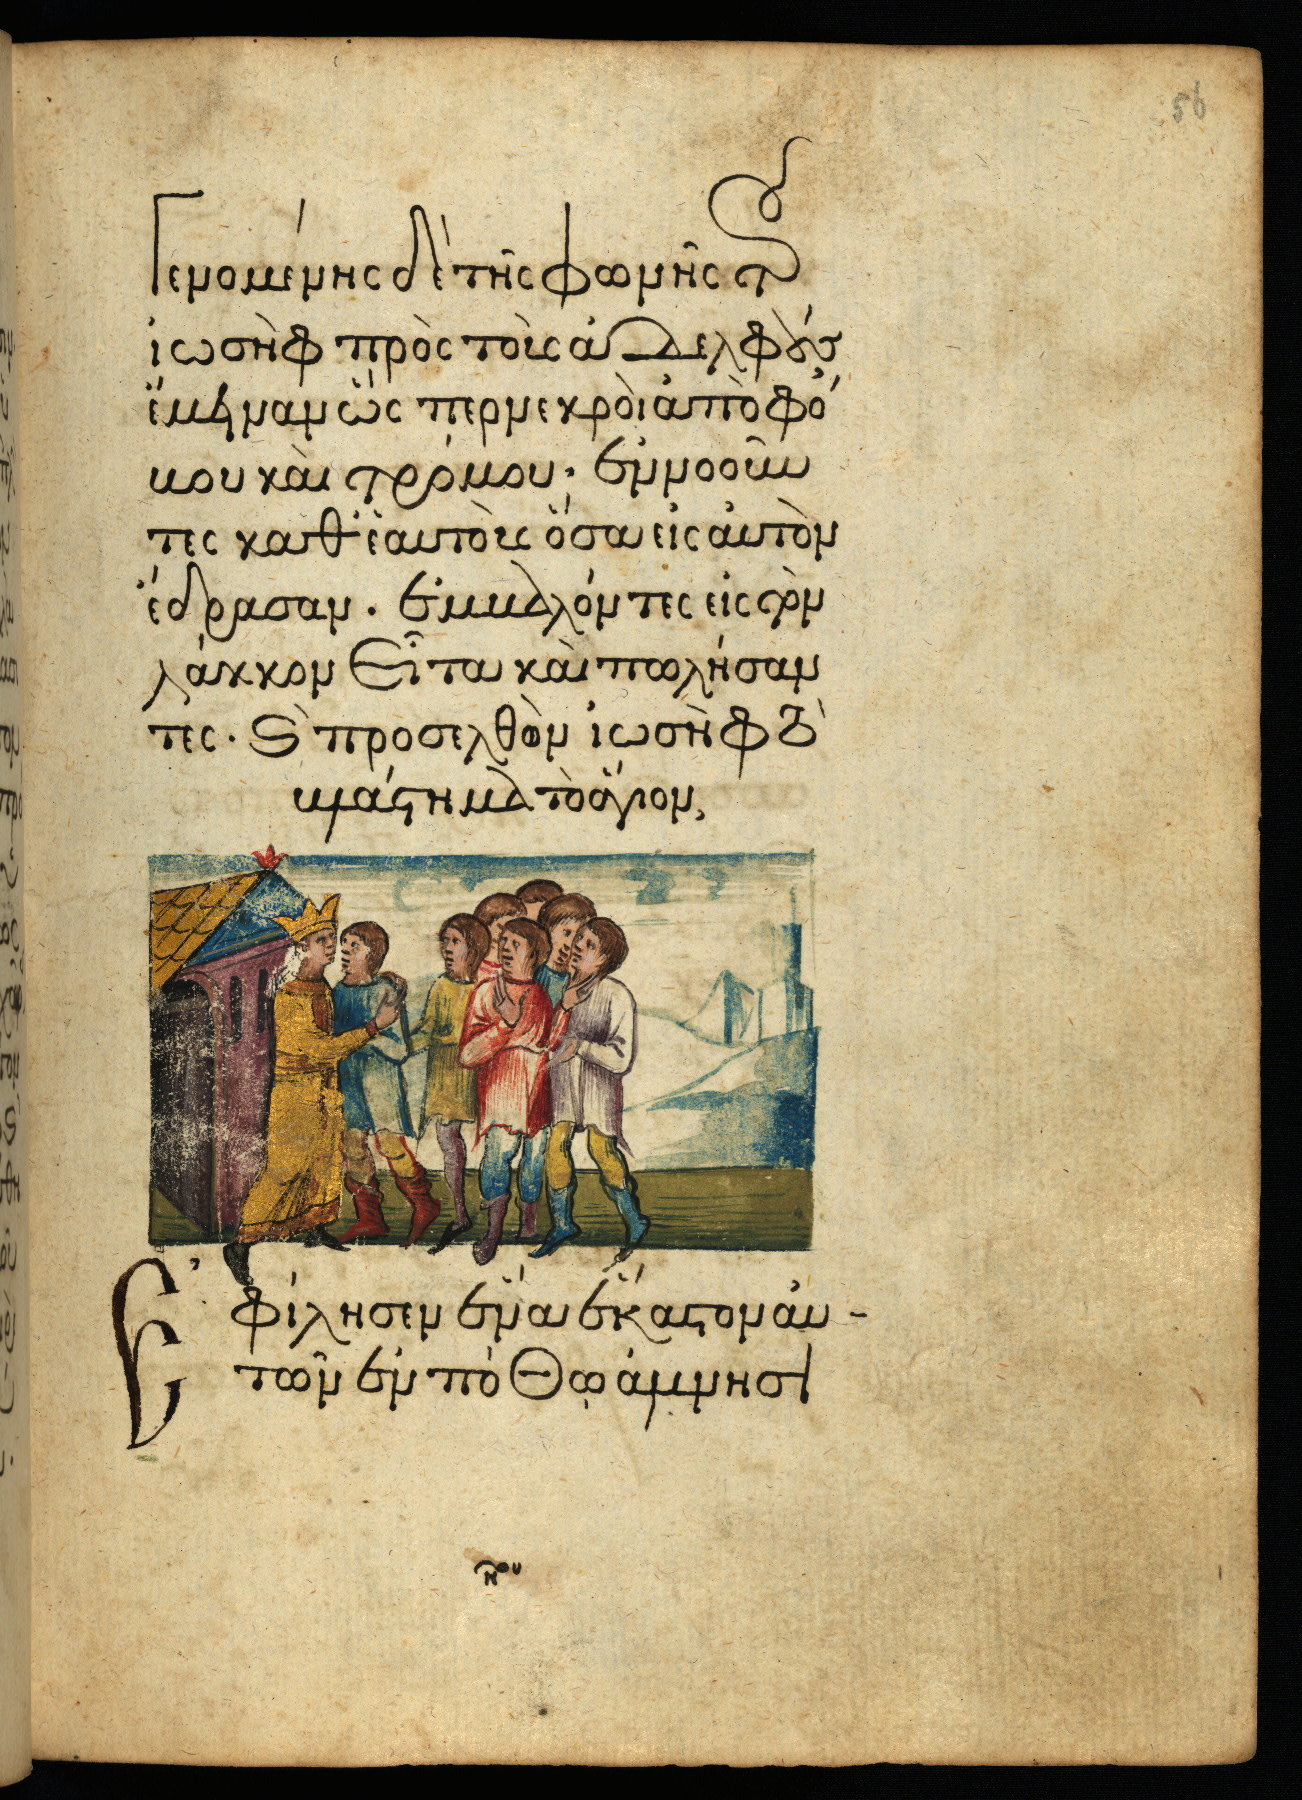 56
Γενομένης δὲ τῆς φωνῆς τοῦ
ἰωσὴφ πρὸς τοὺς ἀδελφούς
ἔμειναν ὡς περ νεκροὶ ἀπὸ φό
βου καὶ τρόμου· ἐννοοῦν
τες καθ' ἑαυτοὺς ὅσα εἰς αὐτὸν
ἔδρασαν. ἐμβαλόντες εἰς τὸν
λάκκον εἶτα καὶ πωλήσαν
τες. προσελθὼν ἰωσὴφ
τὸ ἅγιον,
Ἐφίλησεν ἕνα ἕκαστον αὐ-
τῶν ἐν πόθῳ